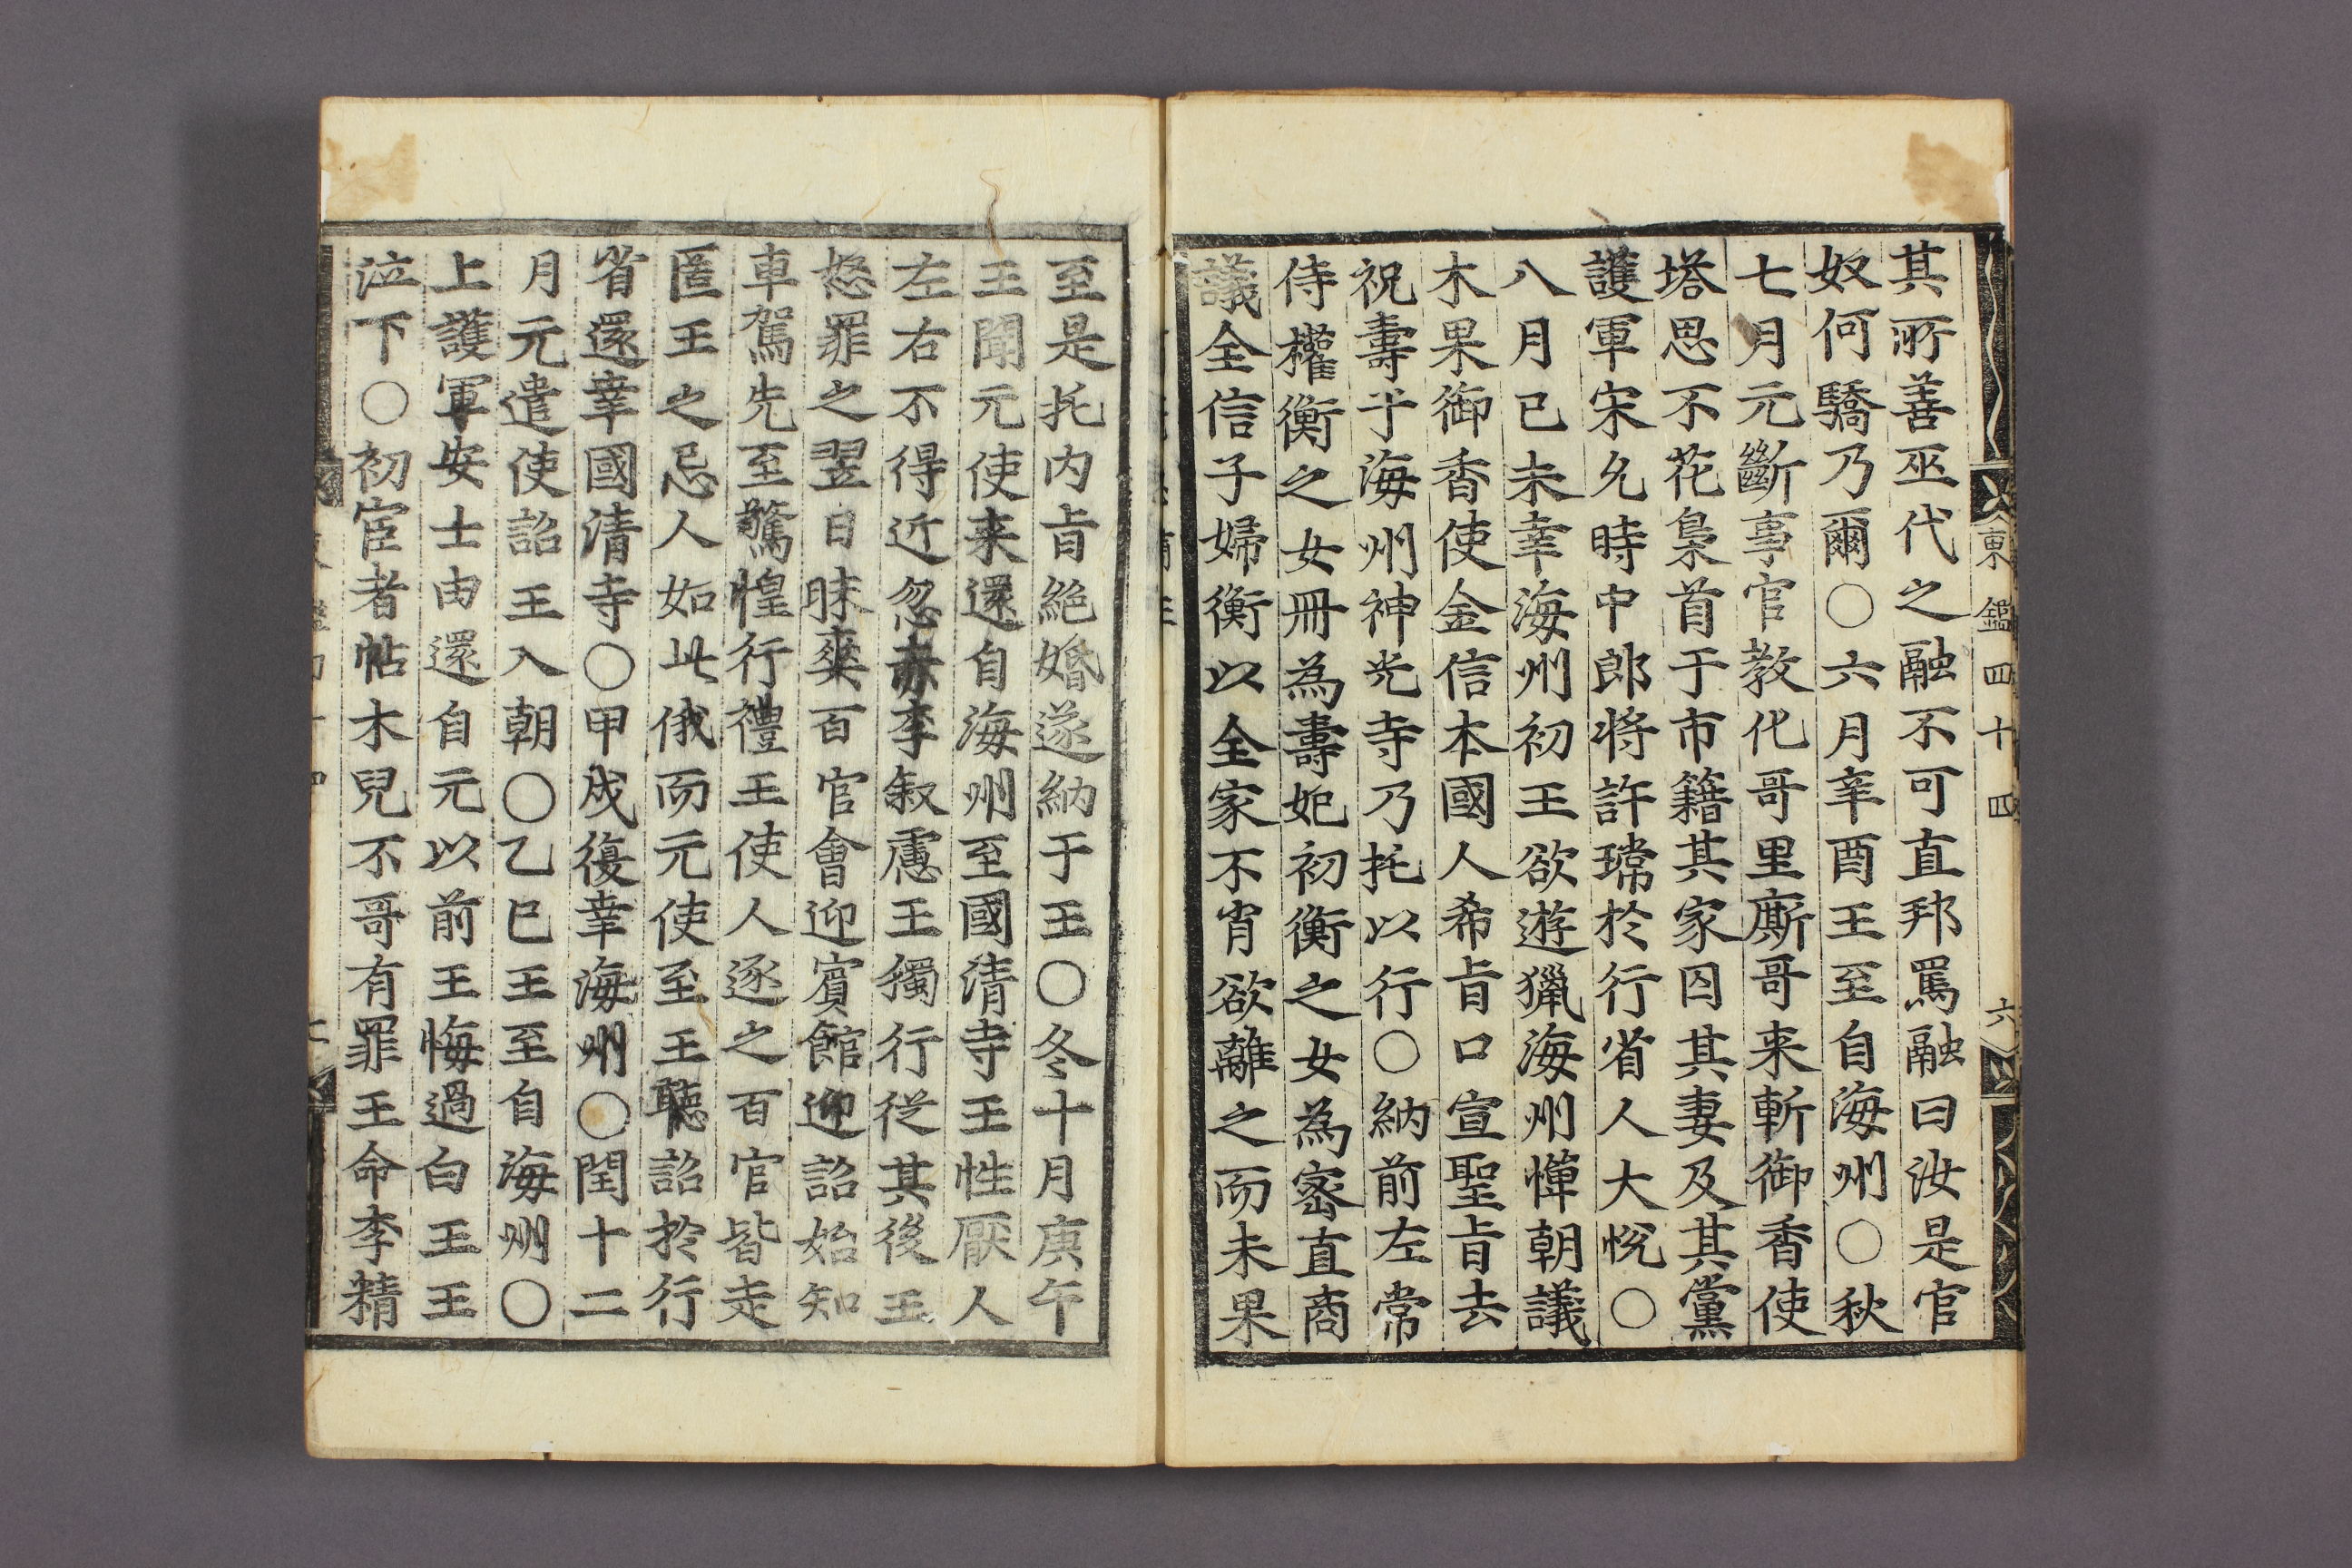 東鑑四十四　六
其所善巫代之融不可直邦罵融曰汝是官
奴何驕乃爾○六月辛酉王至自海州○秋
七月元斷事官教化哥里厮哥来斬御香使
塔思不花梟首于市籍其家囚其妻及其黨
護軍宋允時中郎将許璫於行省人大悅○
八月已未幸海州初王欲遊獵海州憚朝議
木果御香使金信本國人希旨口宣聖旨去
祝壽于海州神光寺乃托以行○納前左常
侍權衡之女冊為壽妃初衡之女為密直商
議全信子婦衡以全家不肖欲離之而未果
至是托内旨絶婚遂納于王○冬十月庚午
王聞元使来還自海州至國清寺王性厭人
左右不得近忽赤李叙慝王獨行從其後王
怒罪之翌日昧爽百官會迎賓館迎詔始知
車駕先至驚惶行禮王使人逐之百官皆走
匿王之忌人如此俄而元使至王聽詔於行
省還幸國清寺○甲戌復幸海州○閏十二
月元遣使詔王入朝○乙巳王至自海州○
上護軍安士由還自元以前王悔過白王王
泣下○初宦者帖木兒不哥有罪王命李精